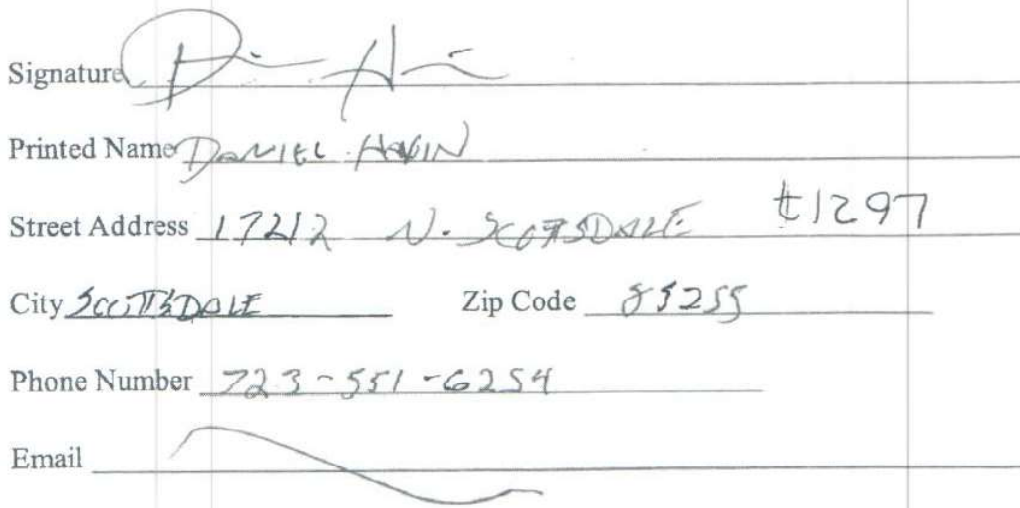 Signature
Printed Name DANIEL
Street Address 17212 N. SCOTTSDALE #1297
City SCOTTSDALE Zip Code 85255
Phone Number 723-551-6254
Email